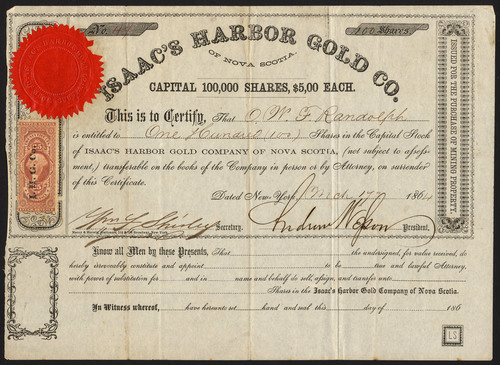 No.
100 Shares
ISAAC'S HARBOR GOLD CO.
OF NOVA SCOTIA
CAPITAL 100,000 SHARES, $5,00 EACH.
This is to Certify, That O. W. F. Randolph
is entitled to One Hundred (100) Shares in the Capital Stock
of ISAAC'S HARBOR GOLD COMPANY OF NOVA SCOTIA, (not subject to assess-
ment,) transferable on the books of the Company in person or by Attorney, on surrender
of this Certificate.
Dated New-York March 17 1864
Secretary.
President.
ISSUED FOR THE PURCHASE OF MINING PROPERTY.
I. H. G. Co.
Know all Men by these Presents, That the undersigned, for value received, do
hereby irrevocably constitute and appoint to be time and lawful Attorney,
with power of substitution for and in name and behalf to sell, assign, and transfer unto
Shares in the Isaac's Harbor Gold Company of Nova Scotia.
In Witness whereof, have hereunto set hand and seal this day of 186
LS